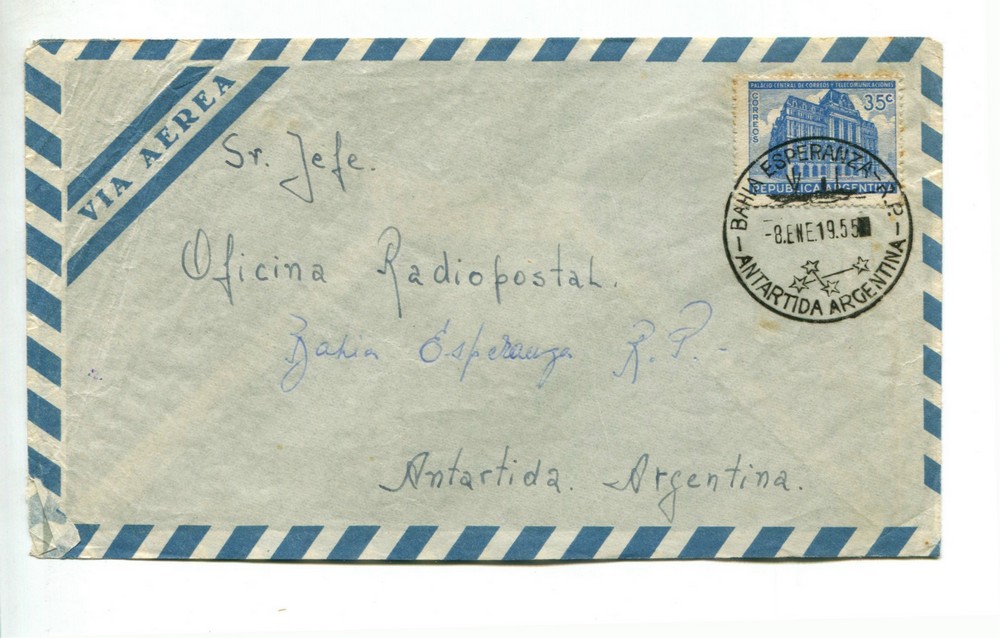 VIA AEREA
PALACIO CENTRAL DE CORREOS Y TELECOMUNICACIONES
CORREOS
35c
REPUBLICA ARGENTINA
BAHIA ESPERANZA - R.P.
-8.ENE.19.55
ANTARTIDA ARGENTINA
Sr. Jefe.
Oficina Radiopostal.
Bahia Esperanza R. P. -
Antartida. Argentina.